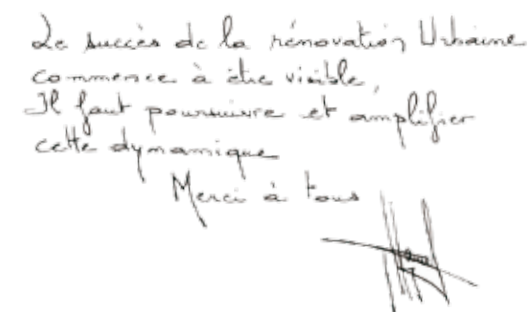 Le succès de la rénovation Urbaine
commence à être visible,
Il faut poursuivre et amplifier
cette dynamique
Merci à tous